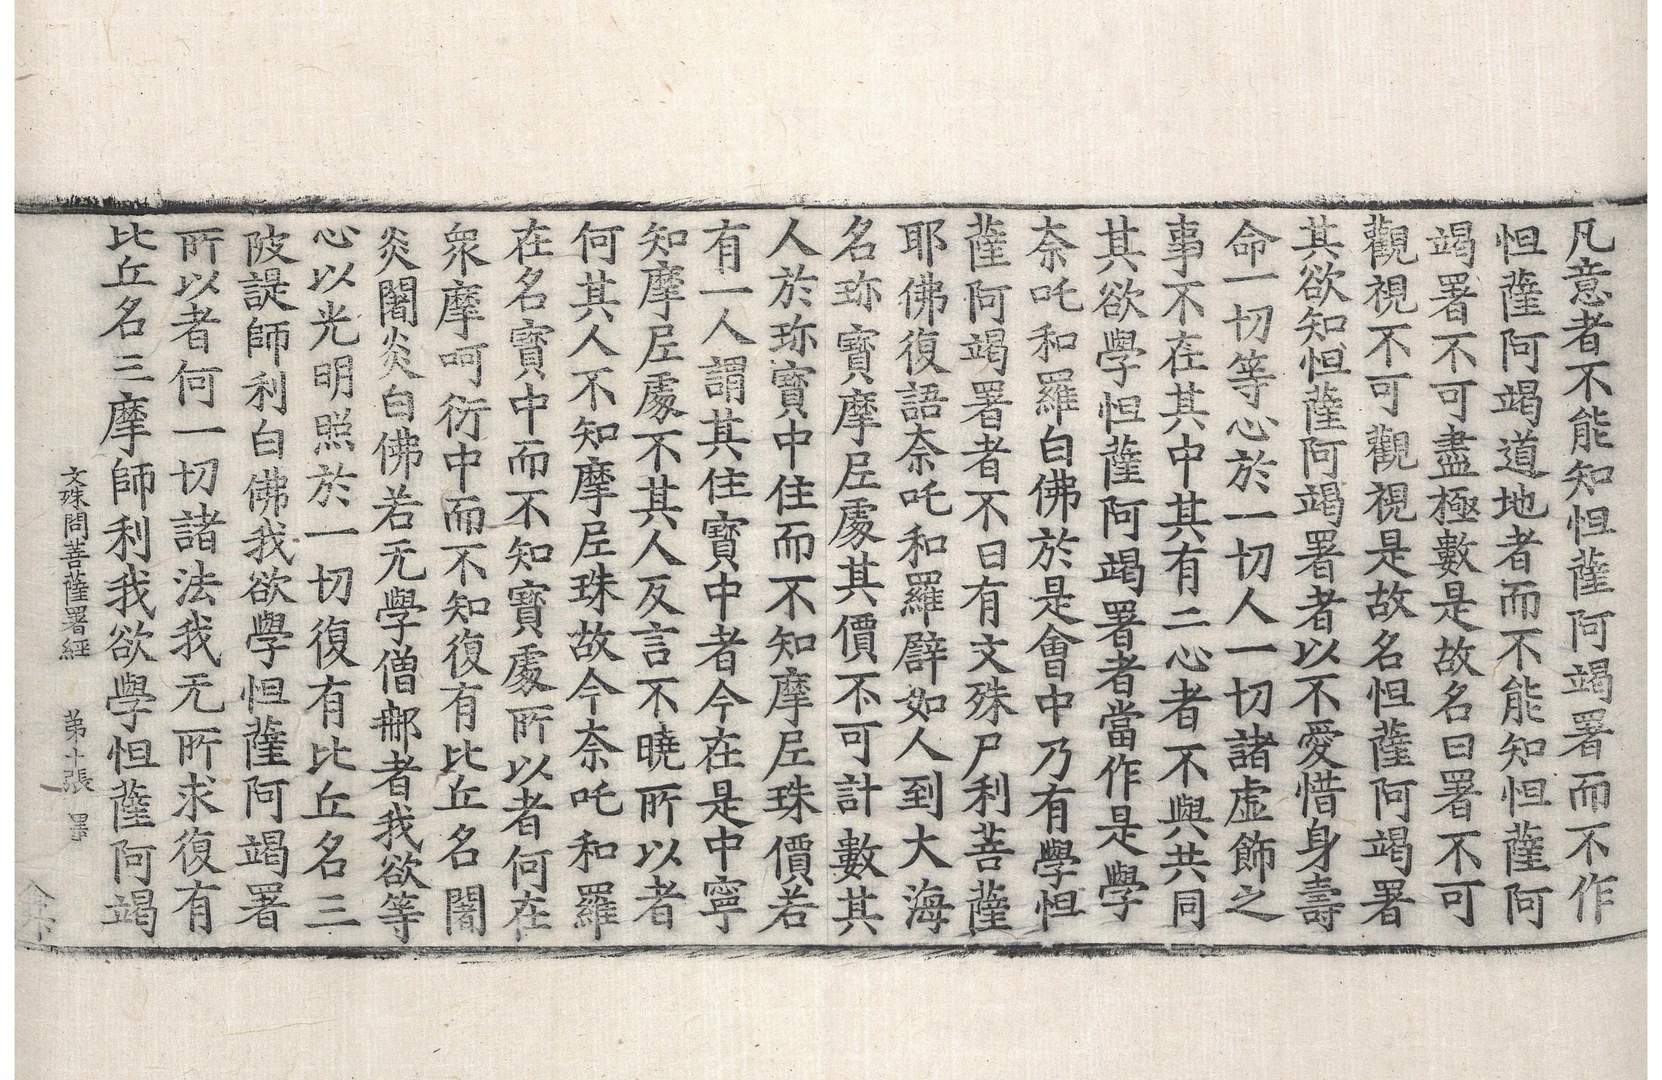 凡意者不能知怛薩阿竭署而不作
怛薩阿竭道地者而不能知怛薩阿
竭署不可盡極數是故名曰署不可
觀視不可觀視是故名怛薩阿竭署
其欲知怛薩阿竭署者以不愛惜身壽
命一切等心於一切人一切諸虛飾之
事不在其中其有二心者不與共同
其欲學怛薩阿竭署者當作是學
奈吒和羅白佛於是會中乃有學怛
薩阿竭署者不曰有文殊尸利菩薩
耶佛復語奈吒和羅辟如人到大海
名珎寶摩尼處其價不可計數其
人於珎寶中住而不知摩尼珠價若
有一人謂其住寶中者今在是中寧
知摩尼處不其人反言不曉所以者
何其人不知摩尼珠故今奈吒和羅
在名寶中而不知寶處所以者何在
衆摩呵衍中而不知復有比丘名闍
炎闍炎白佛若无學僧那者我欲等
心以光明照於一切復有比丘名三
陂諟師利白佛我欲學怛薩阿竭署
所以者何一切諸法我无所求復有
比丘名三摩師利我欲學怛薩阿竭
文殊問菩薩署經 第十張 墨